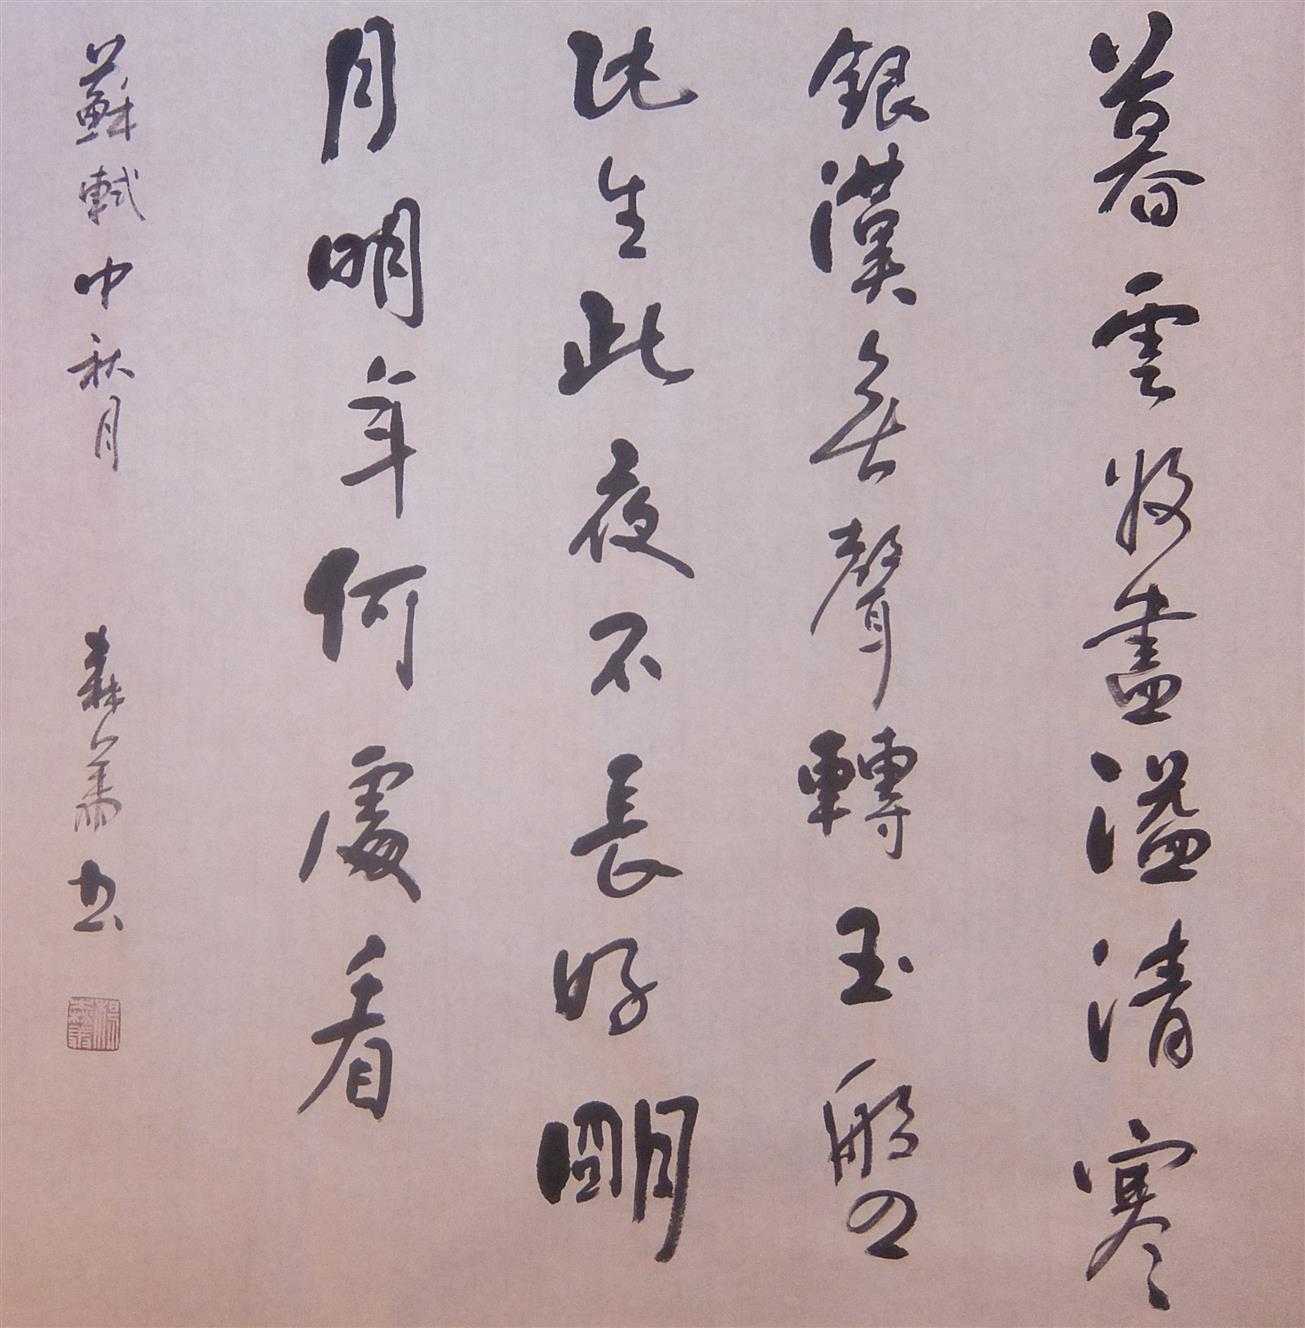 暮雲收盡溢清寒
銀漢無聲轉玉盤
此生此夜不長好明
月明年何處看
蘇軾中秋月 森義书